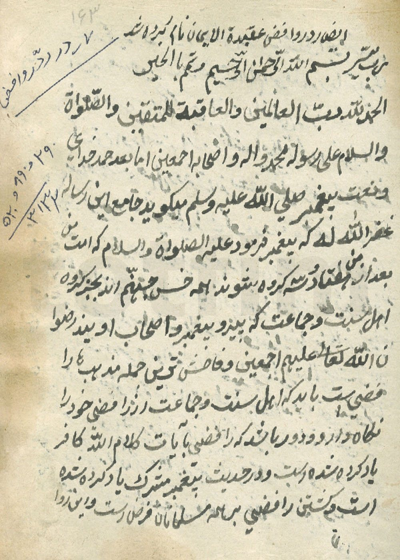 ۱۶۳
ایضا در رد روافض عقیدة الایمان نام کرده شد
رب یسر بسم الله الرحمن الرحیم وتمم بالخیر
الحمد لله رب العالمین والعاقبة للمتقین والصلواة
والسلام علی رسوله محمد واله واصحابه اجمعین اما بعد حمد خدای
ونعت پیغمبر صلی الله علیه وسلم میکوید جامع این رساله
غفر الله له که پیغمبر فرمود علیه الصلواة والسلام که امت من
بعد از من هفتاد وسه کروه بشوند همه جهنم اند بجز کروه
اهل سنت وجماعت که پیرو پیغمبر واصحاب او بند رضوا
ن الله تعالی علیهم اجمعین جمله مذهبها را
فضی است باید که اهل سنت وجماعت از رافضی خود را
نکاه دارد ودور باشد که رافضی بآیات کلام الله کافر
یاد کرده شده است ودر حدیث پیغمبر مشرک یاد کرده شده
است وکشتن رافضی بر همه مسلمانان فرض است واین روا
در رد روافض